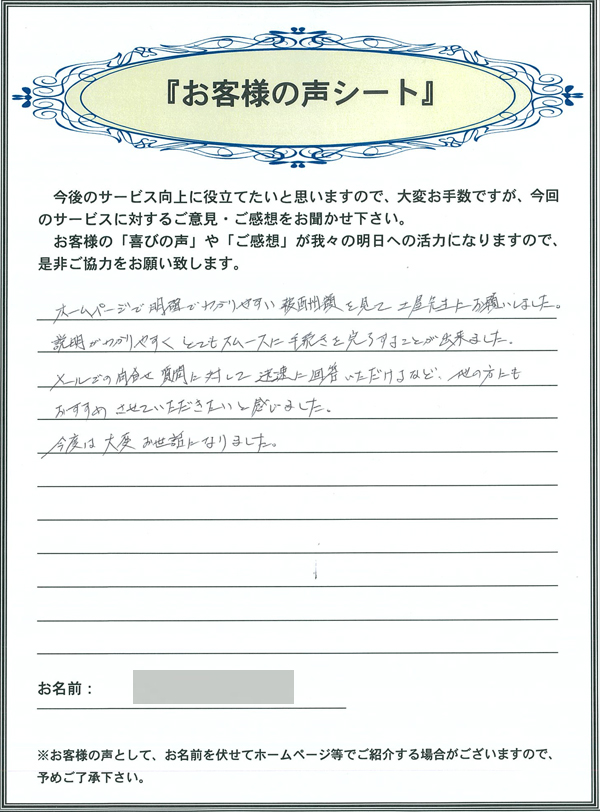 『お客様の声シート』
今後のサービス向上に役立てたいと思いますので、大変お手数ですが、今回
のサービスに対するご意見・ご感想をお聞かせ下さい。
お客様の「喜びの声」や「ご感想」が我々の明日への活力になりますので、
是非ご協力をお願い致します。
ホームページで明確でわかりやすい報酬額を見て土屋先生にお願いしました。
説明がわかりやすくとてもスムースに手続きを完了することが出来ました。
メールでの問合せ質問に対して迅速に回答いただけるなど、他の方にも
おすすめさせていただきたいと感じました。
今度は大変お世話になりました。
お名前：
※お客様の声として、お名前を伏せてホームページ等でご紹介する場合がございますので、
予めご了承下さい。